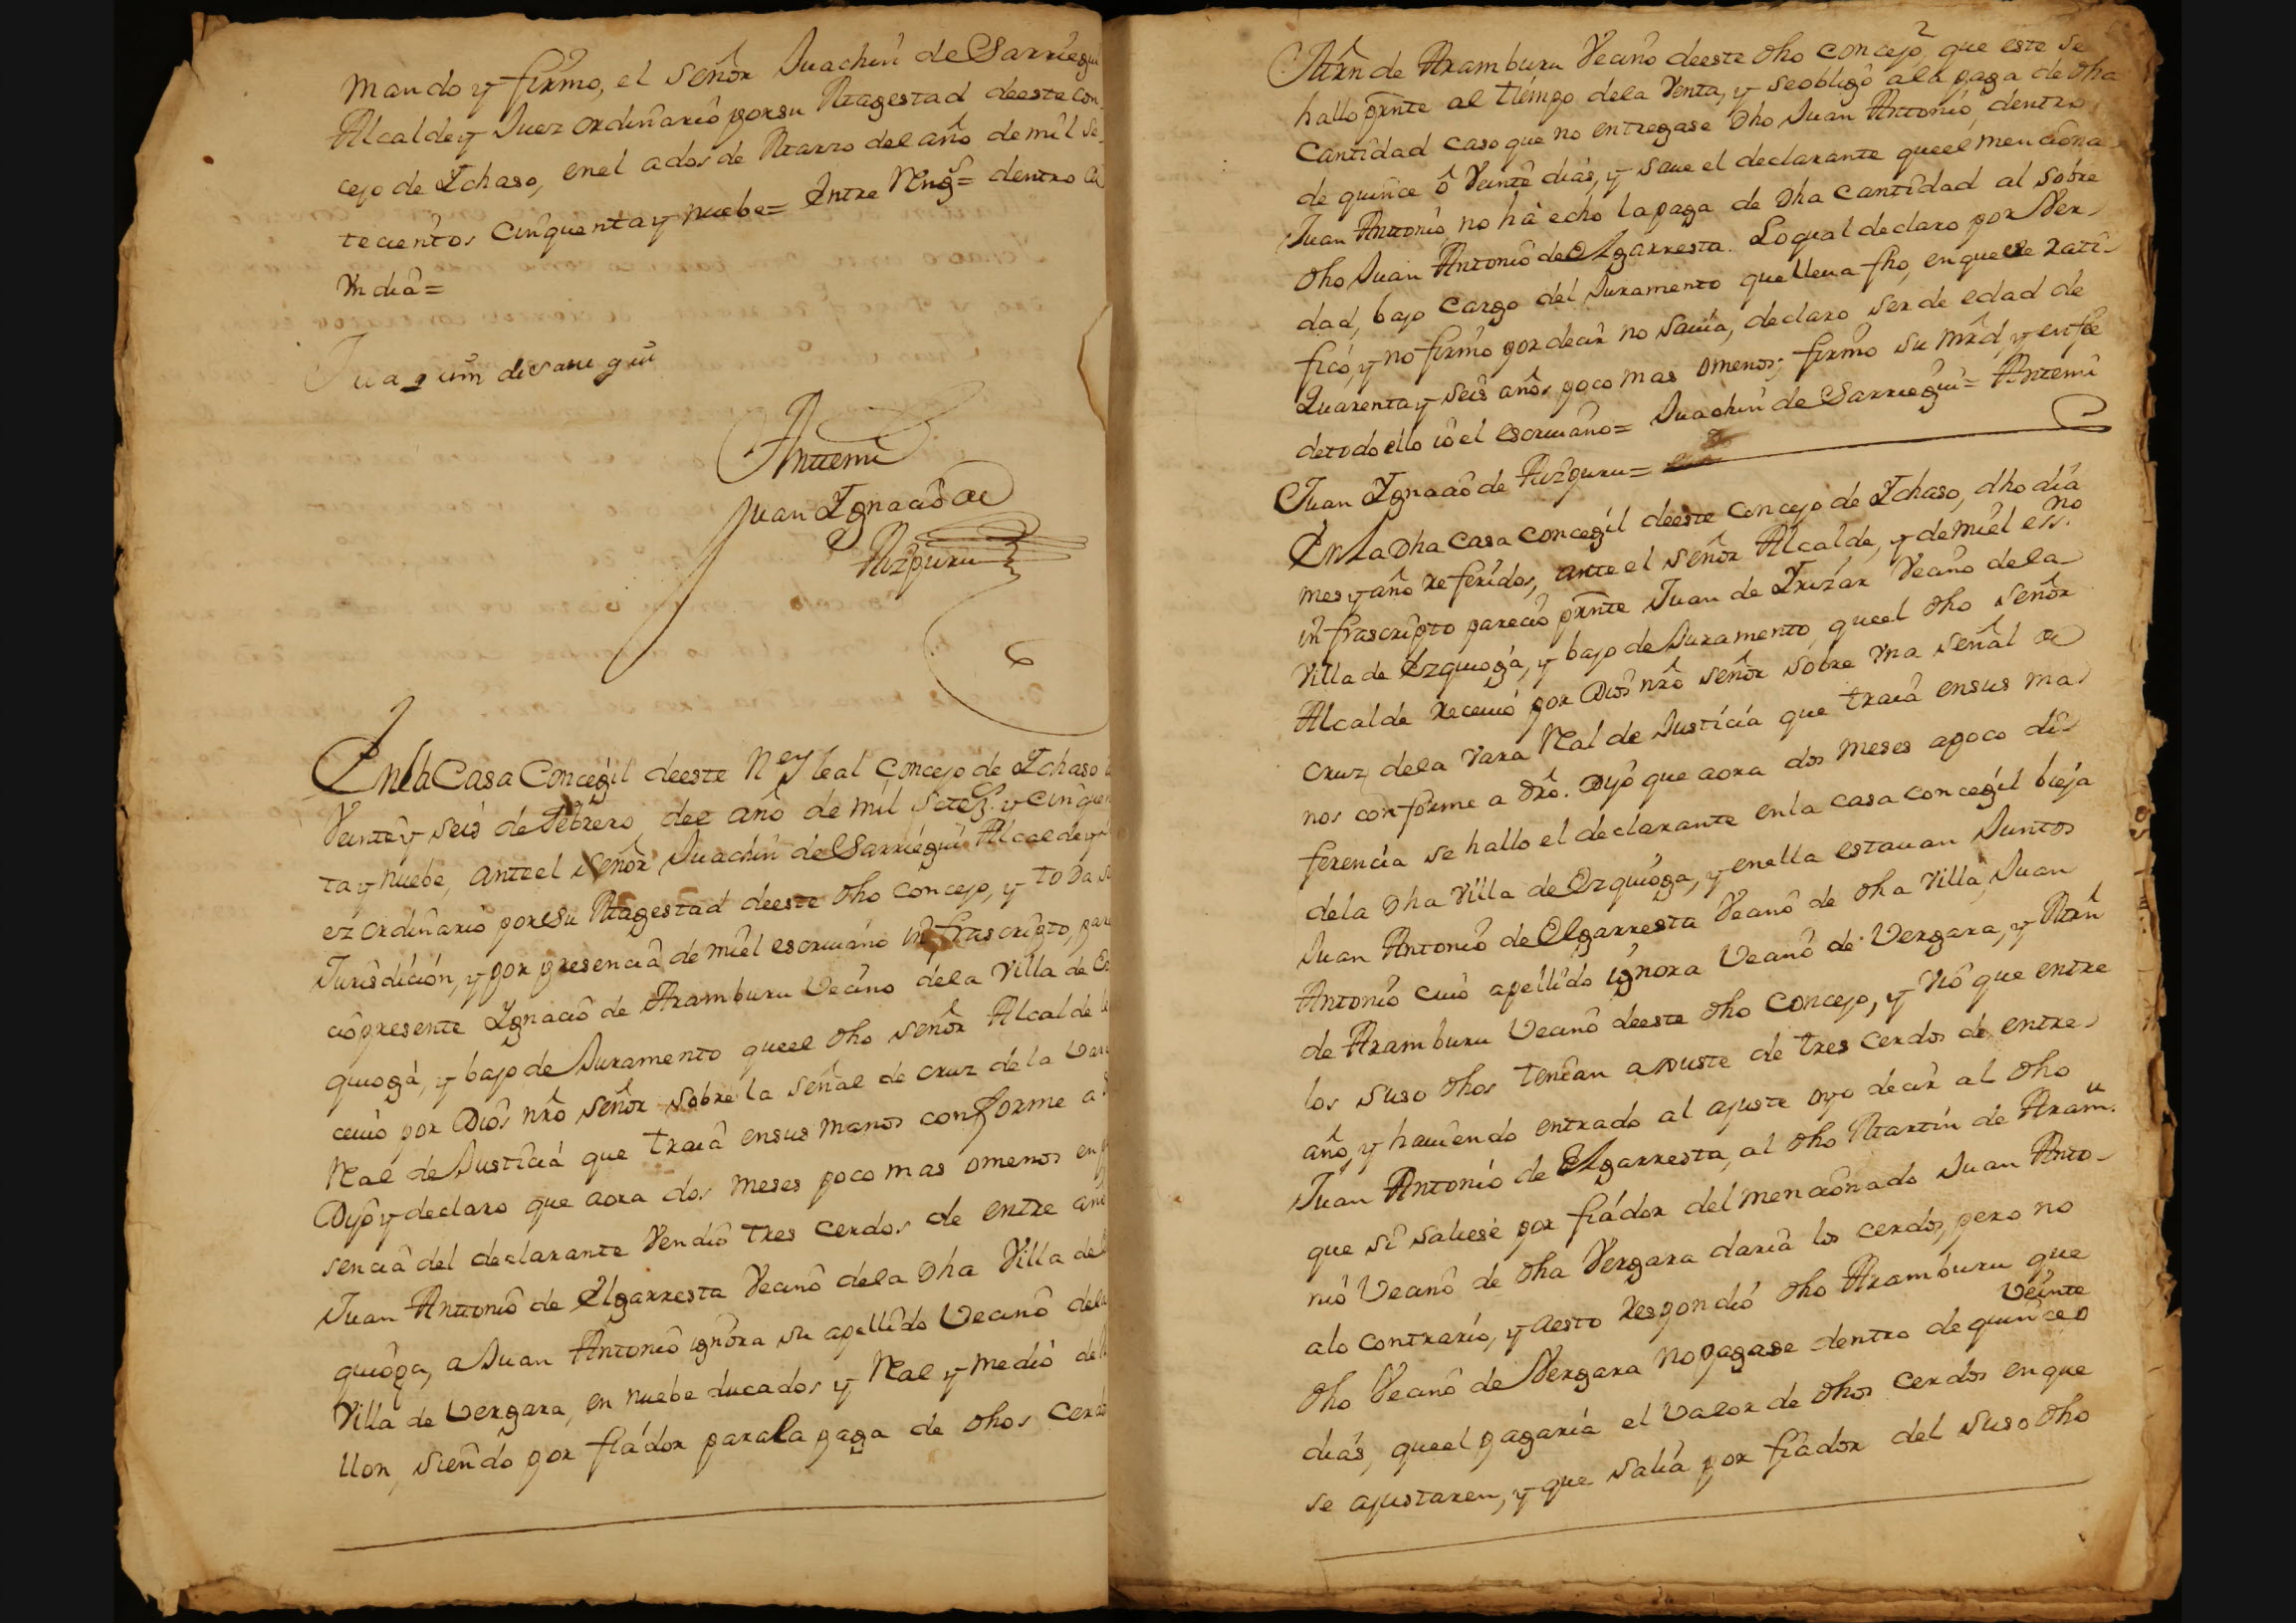 mando y firmo, el señor Juachin de Sarriegui
Alcalde y Juez ordinario por su Magestad deeste con-
cejo de Ychaso, enel ados de Marzo del año de mil se-
tecientos cinquenta y nuebe= Entre Reng.s= dentro de
Vn dia=
Juaquin de sarriegui
Antemi
Juan Ygnacio de
Aizpuru
En la Casa Concegil deeste N. y leal Concejo de Ychaso a
Veinte y seis de Febrero, del año de mil setez.s y cinquen
ta y nuebe, ante el señor Juachin de Sarriegui Alcalde y Ju
ez ordinario por su Magestad deeste dho concejo, y toda su
Jurisdición, y por presencia de mi el escriuano infrascripto, pare
cio presente Ygnacio de Aramburu Vecino dela Villa de Ez
quioga, y bajo de Juramento queel dho señor Alcalde le
ceuio por Dios nrõ señor sobre la señal de cruz de la Vara
Real de Justicia que traia ensus manos conforme a
Dijo y declaro que aora dos meses poco mas omenos en pre
sencia del declarante Vendio tres cerdos de entre año
Juan Antonio de Elgarresta Vecino dela dha Villa de Ez
quioga, a Juan Antonio ignora su apellido Vecino dela
Villa de Vergara, en nuebe ducados y Real y medio de Ve
llon, siendo por fiador para la paga de dhos cerdos
Mrñ de Aramburu Vecino deeste dho concejo, que este se
hallo prnte al tiempo dela Venta, y seobligo ala paga de dha
cantidad caso que no entregase dho Juan Antonio, dentro
de quince ô Veinte dias, y saue el declarante queel menciona-
Juan Antonio no hà echo la paga de dha cantidad al sobre
dho Juan Antonio de Elgarresta. Lo qual declaro por Ver-
dad, bajo cargo del Juramento que lleua fho, en que se rati-
ficó, y no firmo por decir no sauia, declaro ser de edad de
Quarenta y seis años poco mas omenos; firmo su mrd, y en fee
detodo ello io el escriuano= Juachin de Sarriegui= Antemi
Juan Ygnacio de Aizpuru=
En La Dha Casa concegil deeste concejo de Ychaso, dho dia
mes y año referidos, ante el señor Alcalde, y de mi el ess.no
infrascripto parecio prnte Juan de Yrizar Vecino de la
Villa de Ezquioga, y bajo de Juramento, queel dho señor
Alcalde receuio por Dios nrõ señor sobre vna señal de
cruz dela vara Real de Justicia que traia ensus ma
nos conforme a drõ. Dijo que aora dos meses apoco di
ferencia se hallo el declarante enla casa concegil bieja
dela Dha Villa de Ezquioga, y enella estauan Juntos
Juan Antonio de Elgarresta Vecino de dha Villa, Juan
Antonio cuio apellido ignora Vecino de Vergara, y Mrñ
de Aramburu Vecino deeste dho concejo, y vio que entre
los suso dhos tenian ajuste de tres cerdos de entre
año, y hauiendo entrado al ajuste oyo decir al dho
Juan Antonio de Elgarresta, al dho Martin de Aram.u
que si saliese por fiador del mencionado Juan Anto-
nio Vecino de dha Vergara daria los cerdos, pero no
alo contrario, y aesto respondió dho Aramburu que
dho Vecino de Vergara no pagase dentro de quince o Veinte
dias, queel pagaria el Valor de dhos cerdos en que
se ajustaren, y que salia por fiador del suso dho